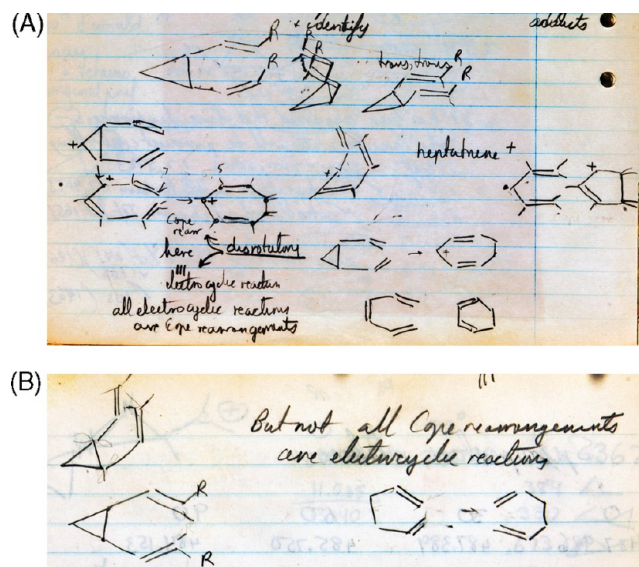 (A)
+ identify adducts
R
R
R
R
trans, trans
R
R
+
heptatriene +
+
+
+
+
→
7
5
Cope
rearr
here disrotatory
→
+
III
electrocyclic reaction
all electrocyclic reactions
are Cope rearrangements
(B)
III
But not all Cope rearrangements
are electrocyclic reactions
R
R